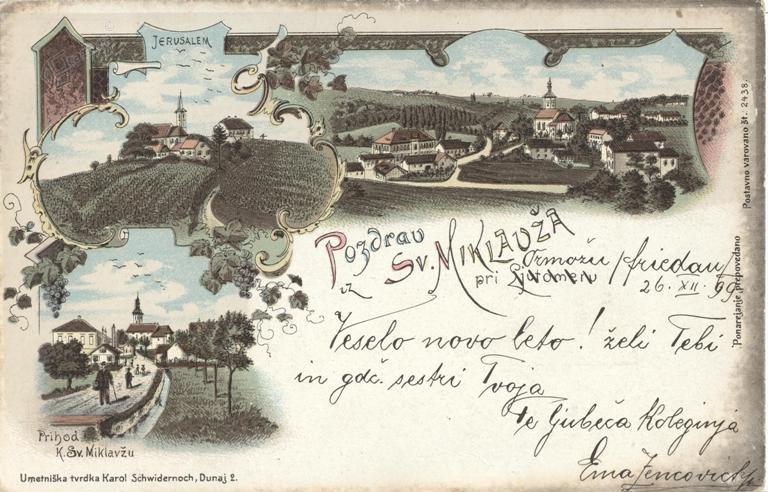 JERUSALEM
Pozdrav
iz Sv. MIKLAVŽA
pri Ljutomeru
Ormožu /Friedau/
26. XII. 99
Veselo novo leto! želi Tebi
in gdč. sestri Tvoja
Te ljubeča Koleginja
Ema
Prihod
K. Sv. Miklavžu
Umetniška tvrdka Karol Schwidernoch, Dunaj 2.
Postavno varovano št. 2438.
Ponarejanje prepovedano